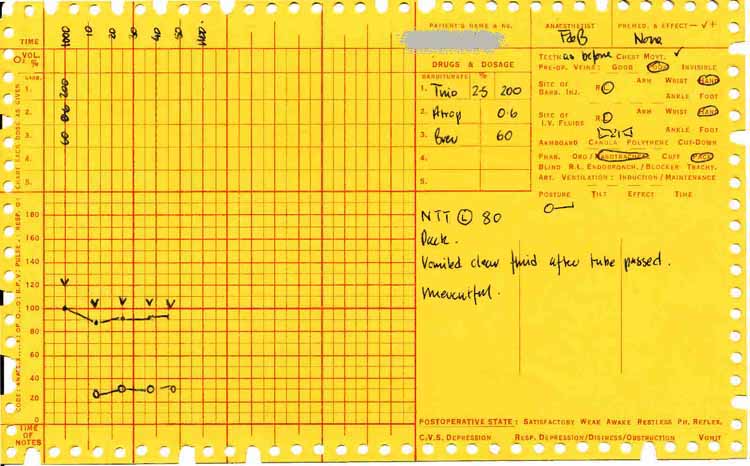 PATIENT'S NAME & NO.
ANAESTHETIST PREMED. & EFFECT — √ +
FdeB None
TIME 1000 10 20 30 40 50 1100.
O2 VOL. %
TEETH as before CHEST MOVT. ✓
PRE-OP. VEINS: GOOD POOR INVISIBLE
DRUGS & DOSAGE
BARBITURATE %
1. Thio 2.5 200
2. Atrop 0.6
3. Brev 60
4.
5.
SITE OF BARB. INJ. R ARM WRIST HAND
ANKLE FOOT
SITE OF I.V. FLUIDS R ARM WRIST HAND
ANKLE FOOT
ARMBOARD CANULA POLYTHENE CUT-DOWN
PHAR. ORO/NASOTRACHEAL CUFF PACK
BLIND R.L. ENDOBRONCH./BLOCKER TRACHY.
ART. VENTILATION: INDUCTION/MAINTENANCE
POSTURE TILT EFFECT TIME
BARB.
1.
2.
3.
4.
5.
60 0.6 200
CHART EACH DOSE AS GIVEN
180
160
140
120
100
80
60
40
20
0
NTT L 80
Pack.
Vomited clear fluid after tube passed.
Uneventful.
TIME OF NOTES
POSTOPERATIVE STATE: SATISFACTORY WEAK AWAKE RESTLESS PH. REFLEX.
C.V.S. DEPRESSION RESP. DEPRESSION/DISTRESS/OBSTRUCTION VOMIT